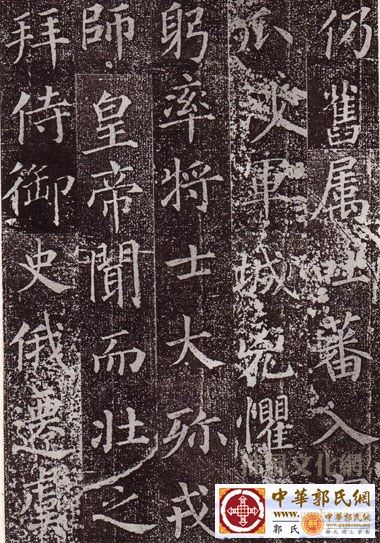 仍舊属吐蕃入
軍城兇懼
躬率將士大殄戎
師皇帝聞而壯之
拜侍御史俄遷
文化網
中華郭氏網
www.
郭氏
中華郭氏網